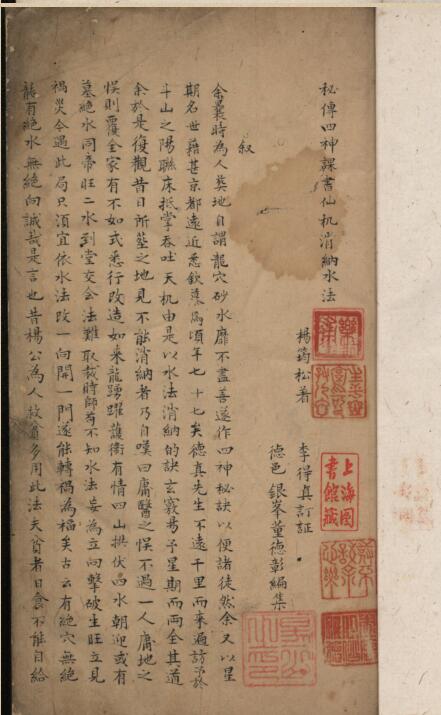 秘傳四神課書仙机消納水法
楊筠松著
李得真訂証
德邑銀峯董德彰編集
叙
余曩時為人葬地自謂龍穴砂水靡不盡善遂作四神秘訣以便諸徒然余又以星
期名世藉甚京都遠近悉欽慕焉頃年七十七矣德真先生不遠千里而來遍訪予於
斗山之陽聯床抵掌吞吐天机由是以水法消納的訣玄竅易予星期而兩全其道
余於是復觀昔日所塟之地見不能消納者乃自嘆曰庸醫之悞不過一人庸地之
悞則覆全家有不如式悉行改造如来龍踴躍護衛有情四山拱伏四水朝迎或有
墓絕水同帝旺二水到堂交会法難取裁時師苟不知水法妄為立向擊破生旺立見
禍災今遇此局只須宜依水法改一向開一門遂能轉禍為福矣古云有絕穴無絕
龍有絕水無絕向誠哉是言也昔楊公為人救貧多用此法夫貧者日食不能自給
上海圖書館藏